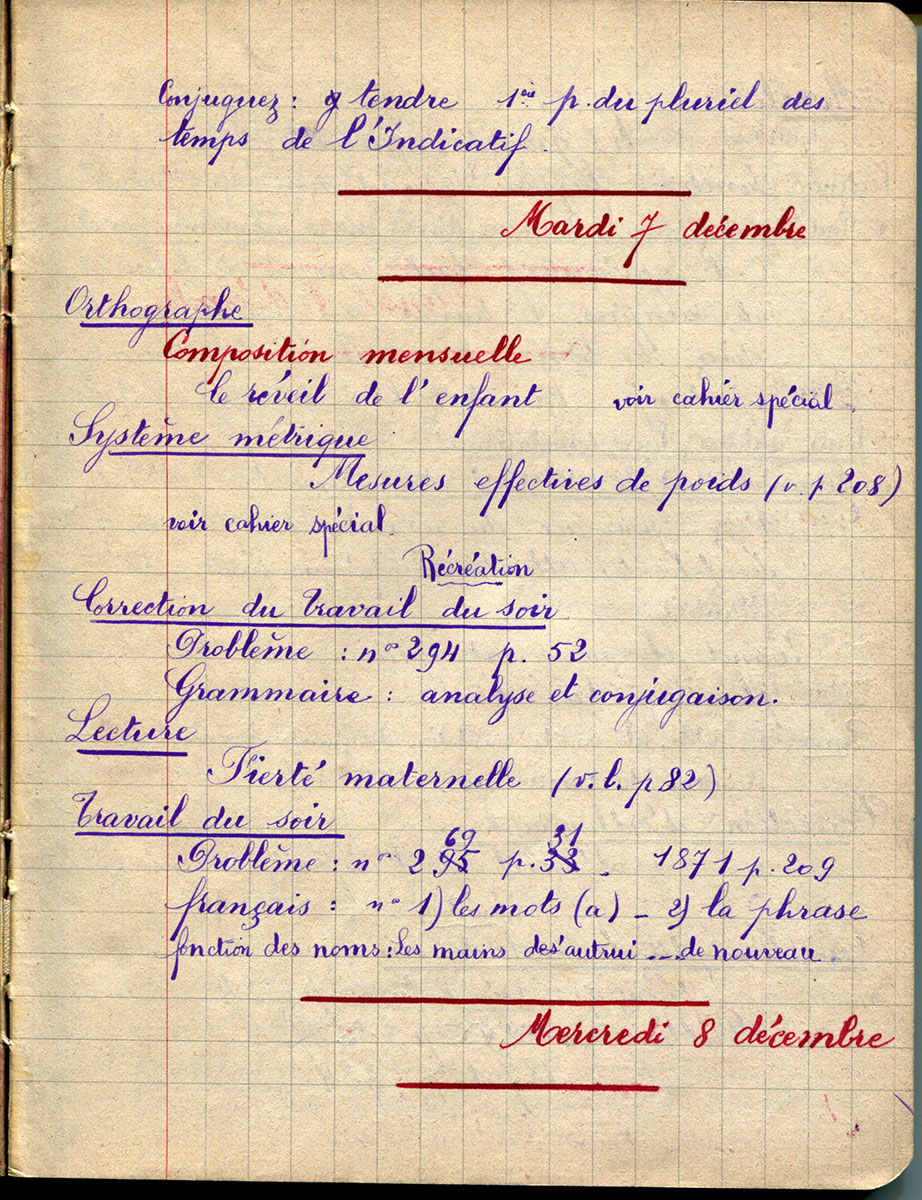 Conjuguez : y tendre 1ère p. du pluriel des
temps de l'Indicatif.
Mardi 7 décembre
Orthographe
Composition mensuelle
le réveil de l'enfant voir cahier spécial.
Système métrique
Mesures effectives de poids (v. p 208)
voir cahier spécial.
Récréation
Correction du travail du soir
Problème : n° 294 p. 52
Grammaire : analyse et conjugaison.
Lecture
Fierté maternelle (v. l. p 82)
Travail du soir
69 31
Problème : n° 295 p. 53 - 1871 p. 209
français : n° 1) les mots (a) - 2) la phrase
fonction des noms : Les mains d'autrui ... de nouveau
Mercredi 8 décembre